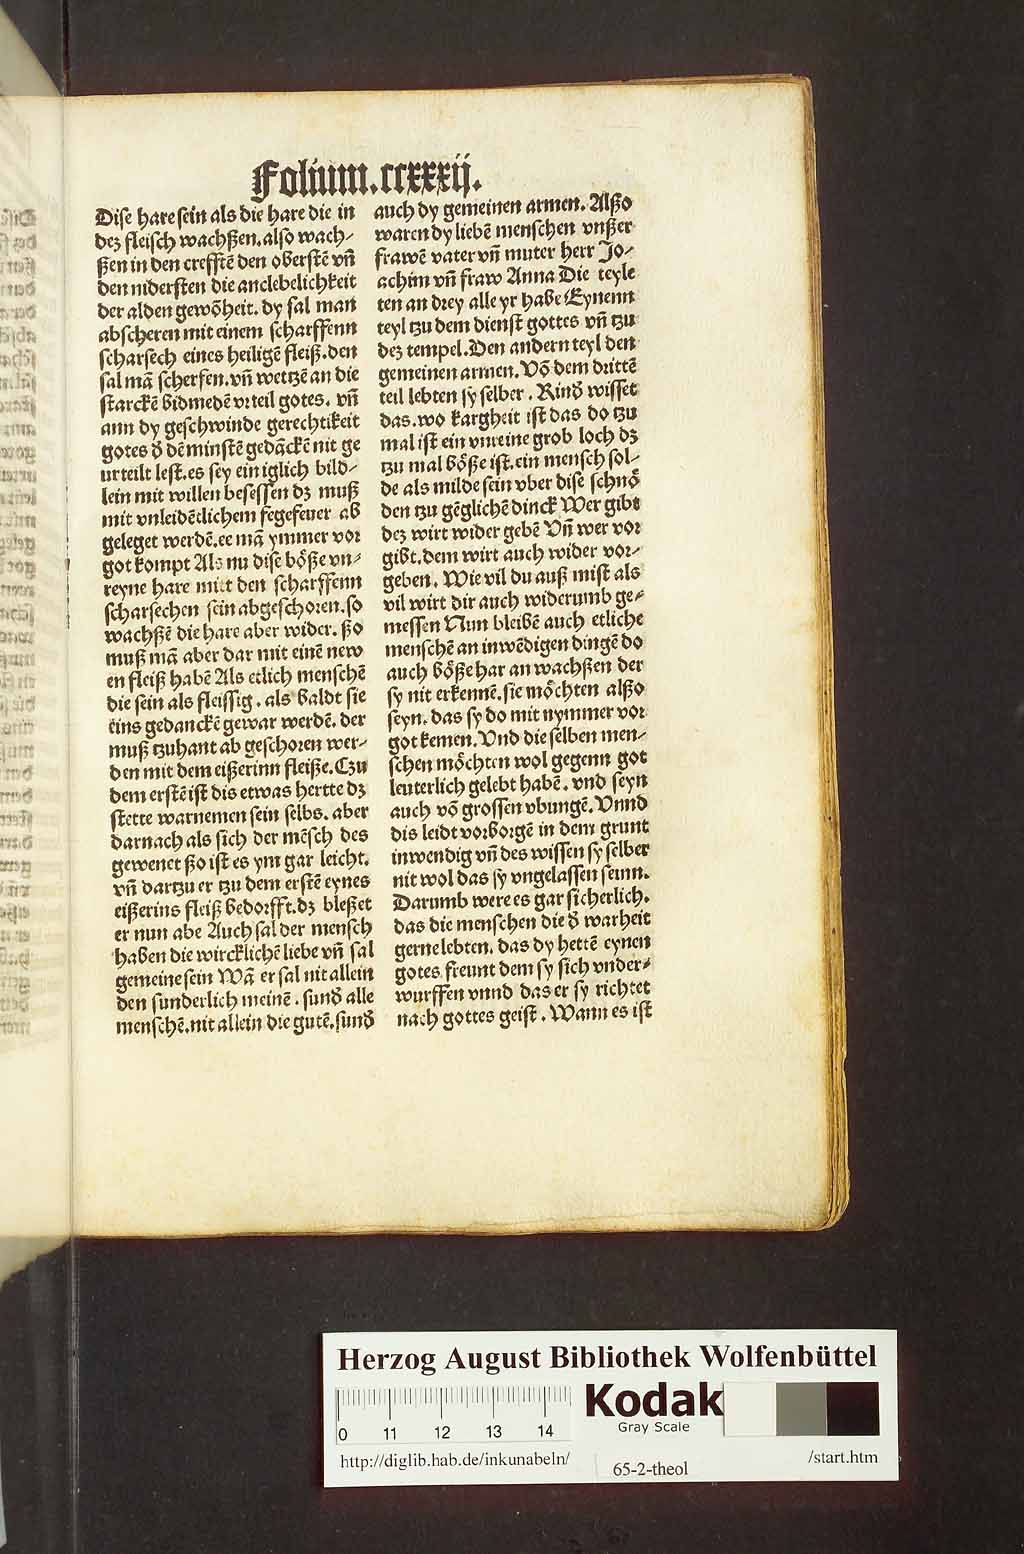 Folium.ccxxxij.
Dise hare sein als die hare die in
dez fleisch wachßen. also wach-
ßen in den crefftē den oberstē vñ
den nidersten die anclebelichkeit
der alden gewōheit. dy sal man
abscheren mit einem scharffenn
scharsech eines heiligē fleiß. den
sal mā scherfen. vñ wettzē an die
starckē bidmedē vrteil gotes. vñ
ann dy geschwinde gerechtikeit
gotes d̄ dē minstē gedāckē nit ge
urteilt lest. es sey ein iglich bild-
lein mit willen besessen dz muß
mit vnleidētlichem fegefeuer ab
geleget werdē. ee mā ymmer vor
got kompt Als nu dise böße vn-
reyne hare mitt den scharffenn
scharsechen sein abgeschoren. so
wachßē die hare aber wider. ßo
muß mā aber dar mit einē new
en fleiß habē Als etlich menschē
die sein als fleissig. als baldt sie
eins gedanckē gewar werdē. der
muß tzuhant ab geschoren wer-
den mit dem eißerinn fleiße. Czu
dem erstē ist dis etwas hertte dz
stette warnemen sein selbs. aber
darnach als sich der mēsch des
gewenet ßo ist es ym gar leicht.
vñ dartzu er tzu dem erstē eynes
eißerins fleiß bedorfft. dz bleßet
er nun abe Auch sal der mensch
haben die wircklichē liebe vñ sal
gemeine sein Wā er sal nit allein
den sunderlich meinē. sund̄ alle
menschē. nit allein die gutē. sund̄
auch dy gemeinen armen. Alßo
waren dy liebē menschen vnßer
frawē vater vñ muter herr Jo-
achim vñ fraw Anna Die teyle
ten an drey alle yr habe Eynenn
teyl tzu dem dienst gottes vñ tzu
dez tempel. Den andern teyl den
gemeinen armen. Vō dem drittē
teil lebten sy selber. Kind̄ wisset
das. wo kargheit ist das do tzu
mal ist ein vnreine grob loch dz
tzu mal böße ist. ein mensch sol-
de als milde sein vber dise schnö
den tzu gēglichē dinck Wer gibt
dez wirt wider gebē Vñ wer vor
gibt. dem wirt auch wider vor-
geben. Wie vil du auß mist als
vil wirt dir auch widerumb ge-
messen Nun bleibē auch etliche
menschē an inwēdigen dingē do
auch böße har an wachßen der
sy nit erkennē. sie möchten alßo
seyn. das sy do mit nymmer vor
got kemen. Vnd die selben men-
schen möchten wol gegenn got
leuterlich gelebt habē. vnd seyn
auch vō grossen vbungē. Vnnd
dis leidt vorborgē in dem grunt
inwendig vñ des wissen sy selber
nit wol das sy vngelassen seinn.
Darumb were es gar sicherlich.
das die menschen die d̄ warheit
gerne lebten. das dy hettē eynen
gotes freunt dem sy sich vnder-
wurffen vnnd das er sy richtet
nach gottes geist. Wann es ist
Herzog August Bibliothek Wolfenbüttel
0 11 12 13 14
Kodak
Gray Scale
http://diglib.hab.de/inkunabeln/
65-2-theol
/start.htm